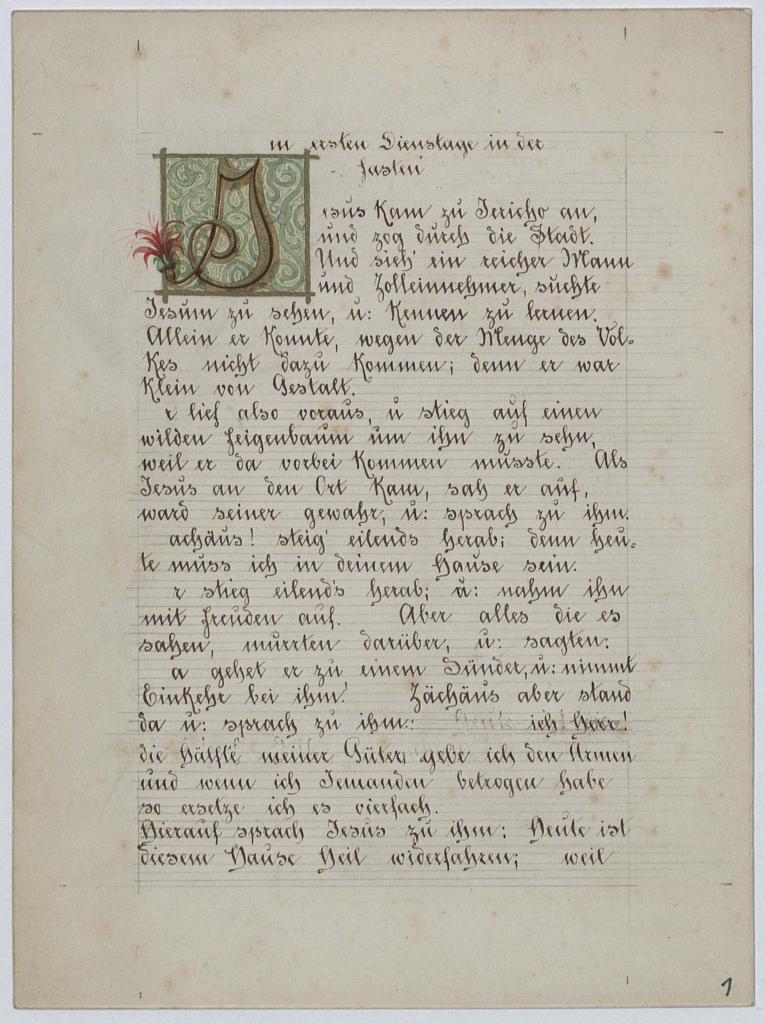 m ersten Dienstage in der
Fasten
Jesus kam zu Jericho an,
und zog durch die Stadt.
Und sieh' ein reicher Mann
und Zolleinnehmer, suchte
Jesum zu sehen, u: kennen zu lernen.
Allein er konnte, wegen der Menge des Vol-
kes nicht dazu kommen; denn er war
klein von Gestalt.
r lief also voraus, u stieg auf einen
wilden Feigenbaum um ihn zu sehn,
weil er da vorbei kommen musste. Als
Jesus an den Ort kam, sah er auf,
ward seiner gewahr, u: sprach zu ihm.
achäus! steig' eilends herab; denn heu-
te muss ich in deinem Hause sein.
r stieg eilends herab; u: nahm ihn
mit Freuden auf. Aber alles die es
sahen, murrten darüber, u: sagten:
a gehet er zu einem Sünder, u: nimmt
Einkehr bei ihm! Zächäus aber stand
da u: sprach zu ihm: ich! Herr!
die Hälfte meiner Güter gebe ich den Armen
und wenn ich Jemanden betrogen habe
so ersetze ich es vierfach.
Hierauf sprach Jesus zu ihm; Heute ist
diesem Hause Heil widerfahren; weil
1